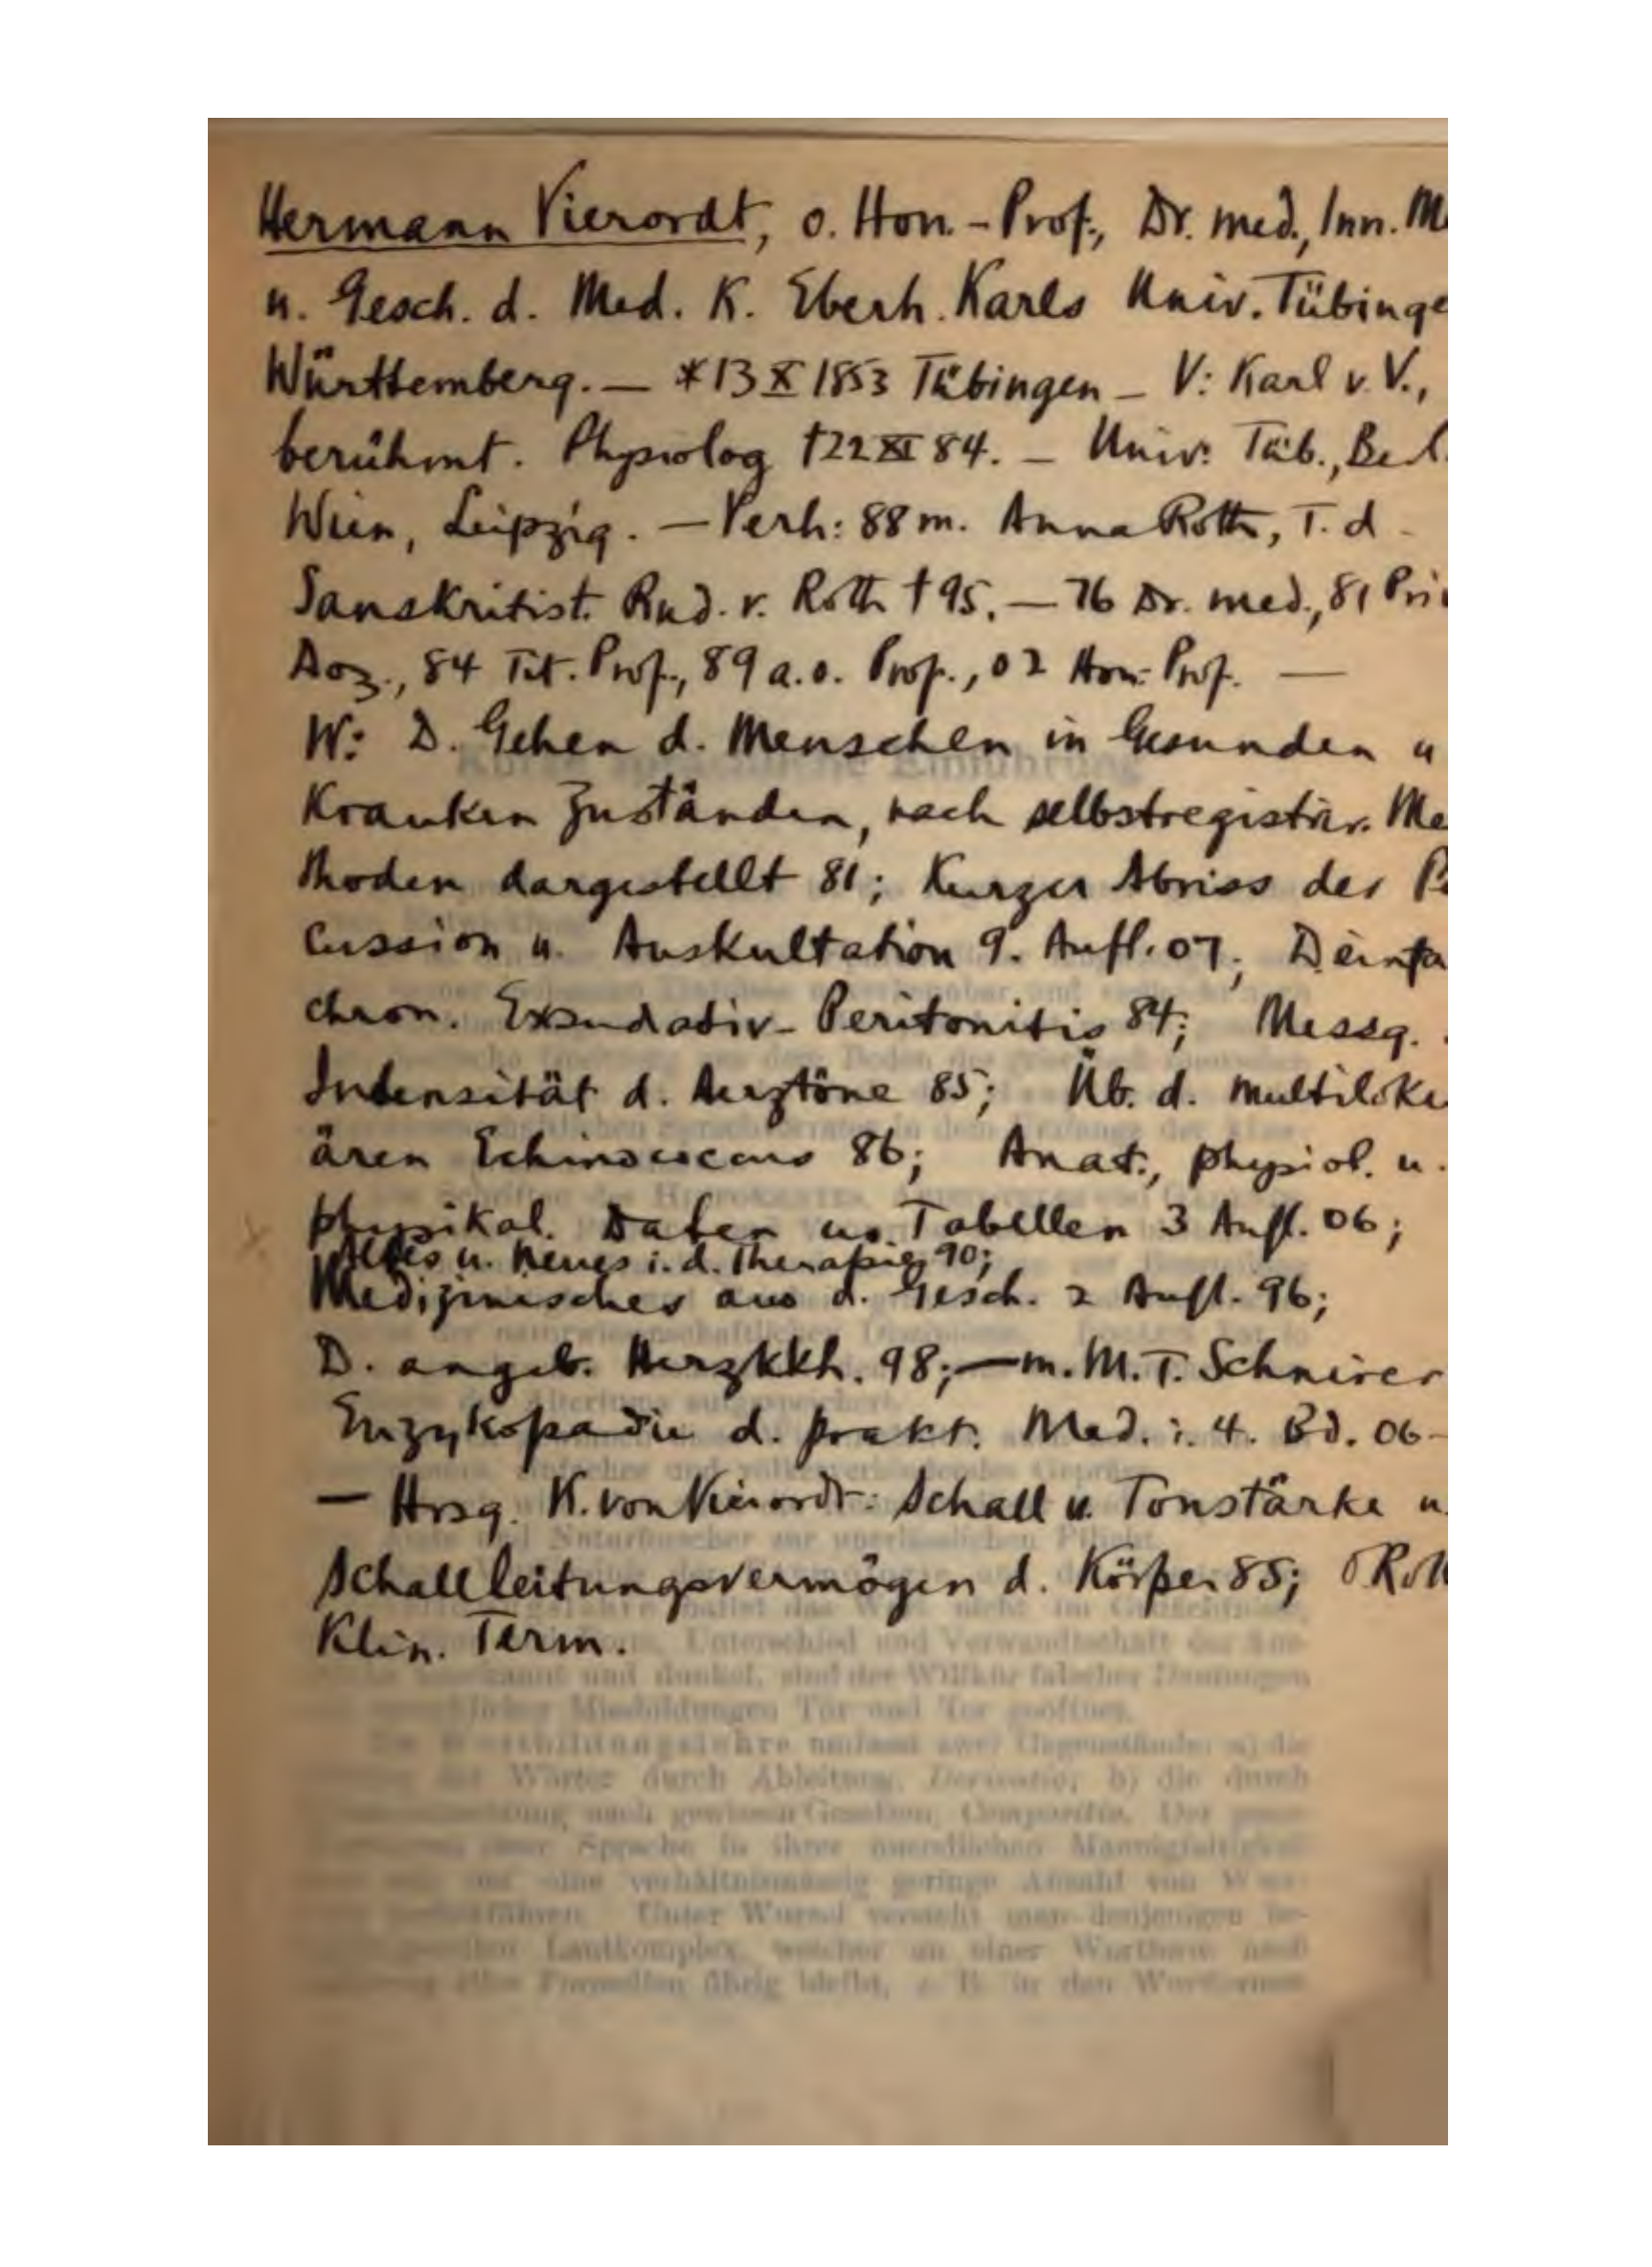 Hermann Vierordt, o. Hon.-Prof., Dr. med., Inn. M
u. Gesch. d. Med. K. Eberh. Karls Univ. Tübinge
Württemberg. — *13 X 1853 Tübingen — V: Karl v. V.,
berühmt. Physiolog †22 XI 84. — Univ: Tüb., Berl.
Wien, Leipzig. — Verh: 88 m. Anna Roth, T. d.
Sanskritist. Rud. v. Roth †95. — 76 Dr. med., 81 Pri
Doz., 84 Tit. Prof., 89 a.o. Prof., 02 Hon. Prof. —
W: D. Gehen d. Menschen in Gesunden u
Kranken Zuständen, nach selbstregistrir. Me
thoden dargestellt 81; Kurzer Abriss der P
cussion u. Auskultation 9. Aufl. 07; D einfa
chron. Exsudativ-Peritonitis 84; Messg.
Intensität d. Herztöne 85; Üb. d. multiloku
ären Echinococcus 86; Anat., physiol. u.
physikal. Daten u. Tabellen 3 Aufl. 06;
Altes u. Neues i. d. Therapie 90;
Medizinisches aus d. Gesch. 2 Aufl. 96;
D. angeb. Herzkkh. 98; — m. M. T. Schnirer
Enzykopadie d. prakt. Med. i. 4. Bd. 06-
— Hrsg. K. von Vierordt: Schall u. Tonstärke u.
Schallleitungsvermögen d. Körper 85; Roth
Klin. Term.